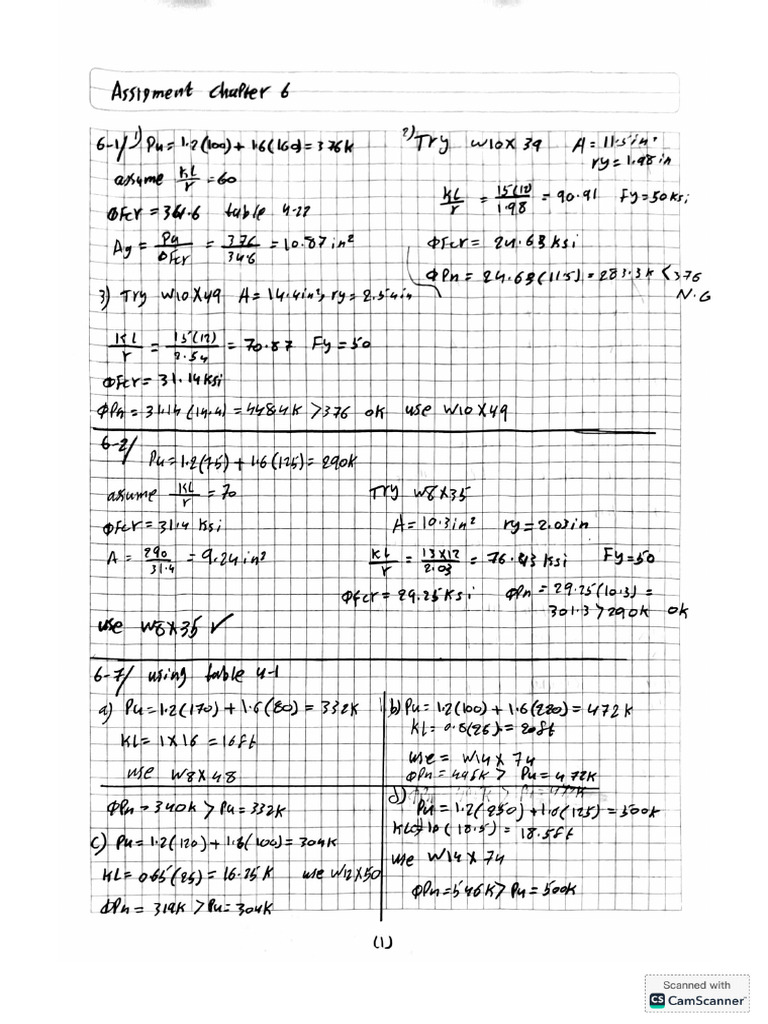 Assigment chapter 6
6-1/ 1) Pu = 1.2(100) + 1.6(160) = 376k
assume KL/r = 60
ΦFcr = 361.6 table 4-22
Ag = Pu/ΦFcr = 376/346 = 10.87 in²
2) Try W10X39 A = 11.5 in²
ry = 1.98 in
KL/r = 15(12)/1.98 = 90.91 Fy = 50 ksi
ΦFcr = 24.63 ksi
ΦPn = 24.63(11.5) = 283.3k < 376
N.G
3) Try W10X49 A = 14.4 in², ry = 2.54 in
KL/r = 15(12)/2.54 = 70.87 Fy = 50
ΦFcr = 31.14 ksi
ΦPn = 31.14(14.4) = 448.4k > 376 ok use W10X49
6-2/
Pu = 1.2(75) + 1.6(125) = 290k
asume KL/r = 70
ΦFcr = 31.4 ksi
A = 290/31.4 = 9.24 in²
use W8X35 ✓
Try W8X35
A = 10.3 in² ry = 2.03 in
KL/r = 13X12/2.03 = 76.83 ksi Fy = 50
Φfcr = 29.25 ksi ΦPn = 29.25(10.3) =
301.3 > 290k ok
6-7/ using table 4-1
a) Pu = 1.2(170) + 1.6(80) = 332k
KL = 1X16 = 16ft
use W8X48
ΦPn = 340k > Pu = 332k
b) Pu = 1.2(100) + 1.6(220) = 472k
KL = 0.8(25) = 20ft
use = W14X74
ΦPn = 495k > Pu = 472k
c) Pu = 1.2(120) + 1.6(100) = 304k
KL = 0.65(25) = 16.25k use W12X50
ΦPn = 319k > Pu = 304k
d) Pu = 1.2(250) + 1.6(125) = 500k
(18.5) = 18.5ft
use W14X74
ΦPn = 546k > Pu = 500k
(1)
Scanned with
CS CamScanner